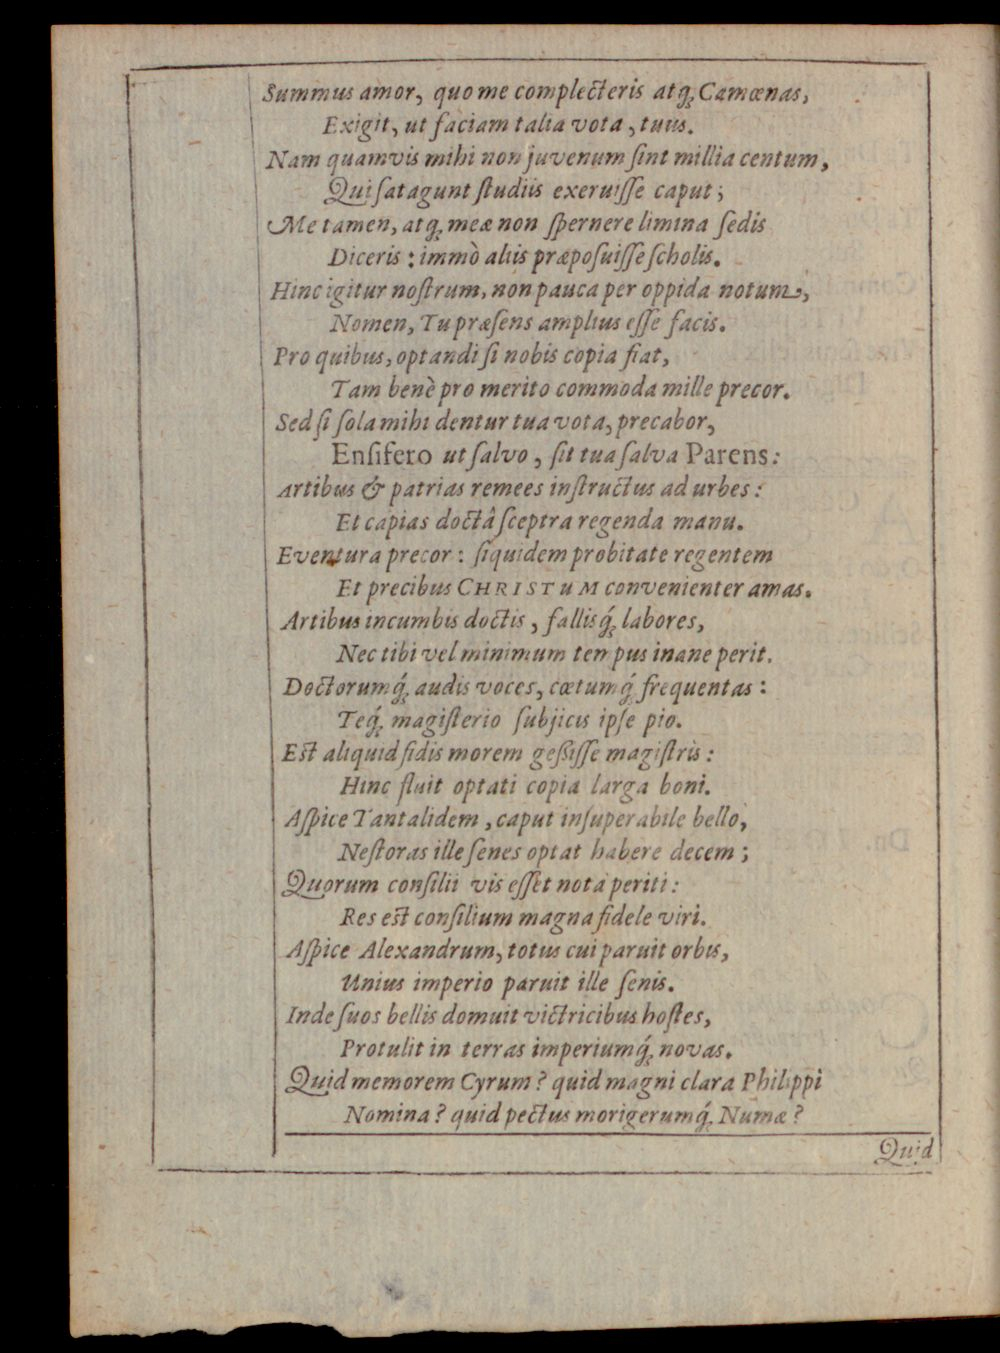 Summus amor, quo me complecteris atq; Camœnas,
Exigit, ut faciam talia vota, tuus.
Nam quamvis mihi non juvenum ſint millia centum,
Qui ſatagunt ſtudiis exeruiſſe caput;
Me tamen, atq; meæ non ſpernere limina ſedis
Diceris: immò aliis præpoſuiſſe ſcholis.
Hinc igitur noſtrum, non pauca per oppida notum,
Nomen, Tu præſens amplius eſſe facis.
Pro quibus, optandi ſi nobis copia fiat,
Tam benè pro merito commoda mille precor.
Sed ſi ſola mihi dentur tua vota, precabor,
Enſifero ut ſalvo, ſit tua ſalva Parens:
Artibus & patrias remees inſtructus ad urbes:
Et capias doctâ ſceptra regenda manu.
Eventura precor: ſiquidem probitate regentem
Et precibus CHRISTUM convenienter amas.
Artibus incumbis doctis, fallisq́; labores,
Nec tibi vel minimum tempus inane perit.
Doctorumq́; audis voces, cœtumq́; frequentas:
Teq́; magiſterio ſubjicis ipſe pio.
Eſt aliquid fidis morem geßiſſe magiſtris:
Hinc fluit optati copia larga boni.
Aſpice Tantalidem, caput inſuperabile bello,
Neſtoras ille ſenes optat habere decem;
Quorum conſilii vis eſſet nota periti:
Res eſt conſilium magna fidele viri.
Aſpice Alexandrum, totus cui paruit orbis,
Unius imperio paruit ille ſenis.
Inde ſuos bellis domuit victricibus hoſtes,
Protulit in terras imperiumq́; novas.
Quid memorem Cyrum? quid magni clara Philippi
Nomina? quid pectus morigerumq́; Numæ?
Quid